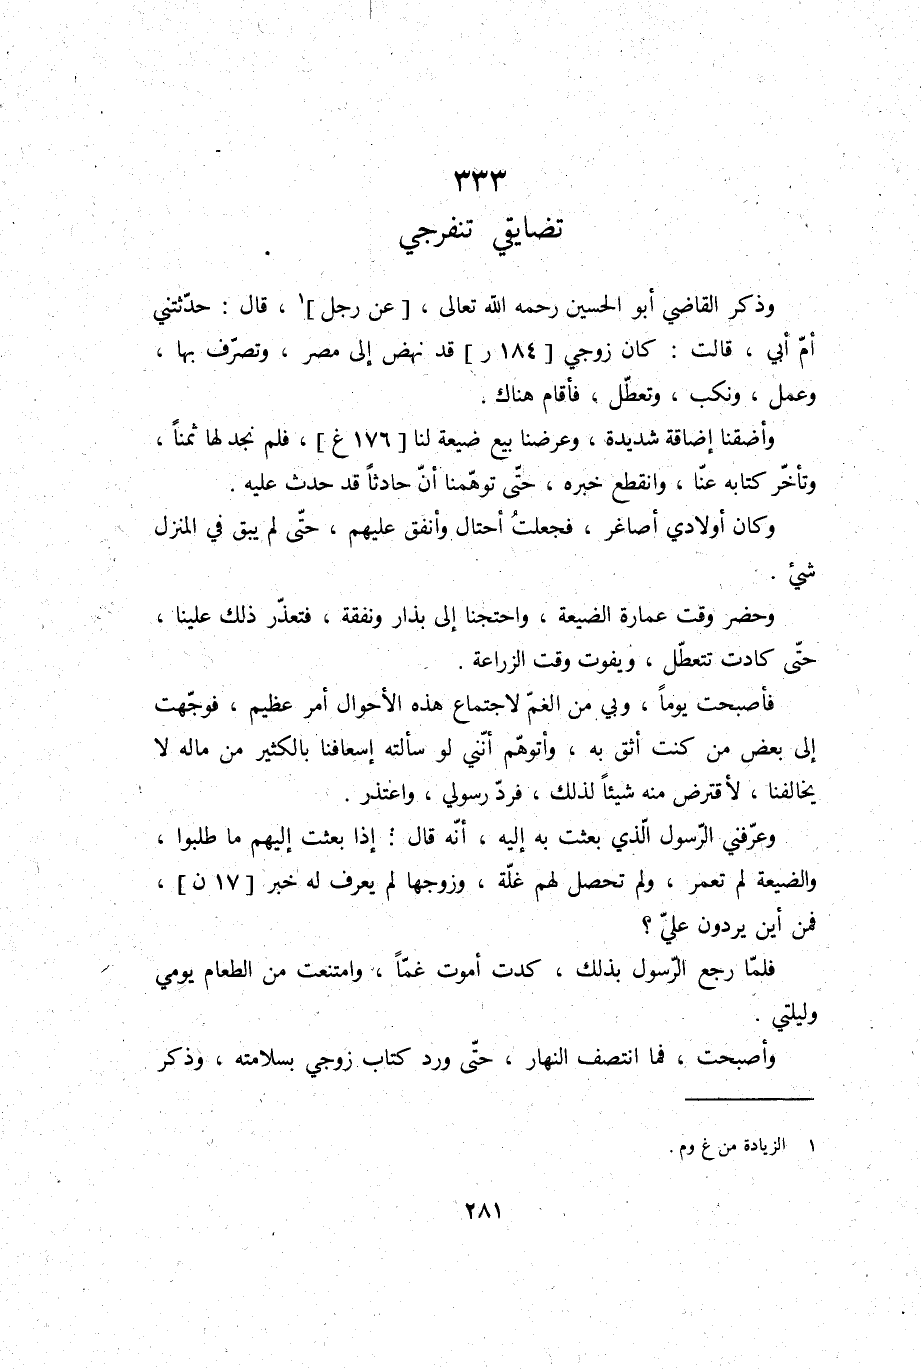 ٣٣٣
تضايقي تنفرجي
وذكر القاضي أبو الحسين رحمه الله تعالى ، [ عن رجل ]١ ، قال : حدّثتني
أمّ أبي ، قالت : كان زوجي [ ١٨٤ ر ] قد نهض إلى مصر ، وتصرّف بها ،
وعمل ، ونكب ، وتعطّل ، فأقام هناك .
وأضقنا إضاقة شديدة ، وعرضنا بيع ضيعة لنا [ ١٧٦ غ ] ، فلم نجد لها ثمناً ،
وتأخّر كتابه عنّا ، وانقطع خبره ، حتّى توهّمنا أنّ حادثاً قد حدث عليه .
وكان أولادي أصاغر ، فجعلتُ أحتال وأنفق عليهم ، حتّى لم يبق في المنزل
شيئ .
وحضر وقت عمارة الضيعة ، واحتجنا إلى بذار ونفقة ، فتعذّر ذلك علينا ،
حتّى كادت تتعطّل ، ويفوت وقت الزراعة .
فأصبحت يوماً ، وبي من الغمّ لاجتماع هذه الأحوال أمر عظيم ، فوجّهت
إلى بعض من كنت أثق به ، وأتوهّم أنّني لو سألته إسعافنا بالكثير من ماله لا
يخالفنا ، لأقترض منه شيئاً لذلك ، فردّ رسولي ، واعتذر .
وعرّفني الرّسول الّذي بعثت به إليه ، أنّه قال : إذا بعثت إليهم ما طلبوا ،
والضيعة لم تعمر ، ولم تحصل لهم غلّة ، وزوجها لم يعرف له خبر [ ١٧ ن ] ،
فمن أين يردون عليّ ؟
فلمّا رجع الرّسول بذلك ، كدت أموت غمّاً ، وامتنعت من الطعام يومي
وليلتي .
وأصبحت ، فما انتصف النهار ، حتّى ورد كتاب زوجي بسلامته ، وذكر
١ الزيادة من غ وم .
٢٨١